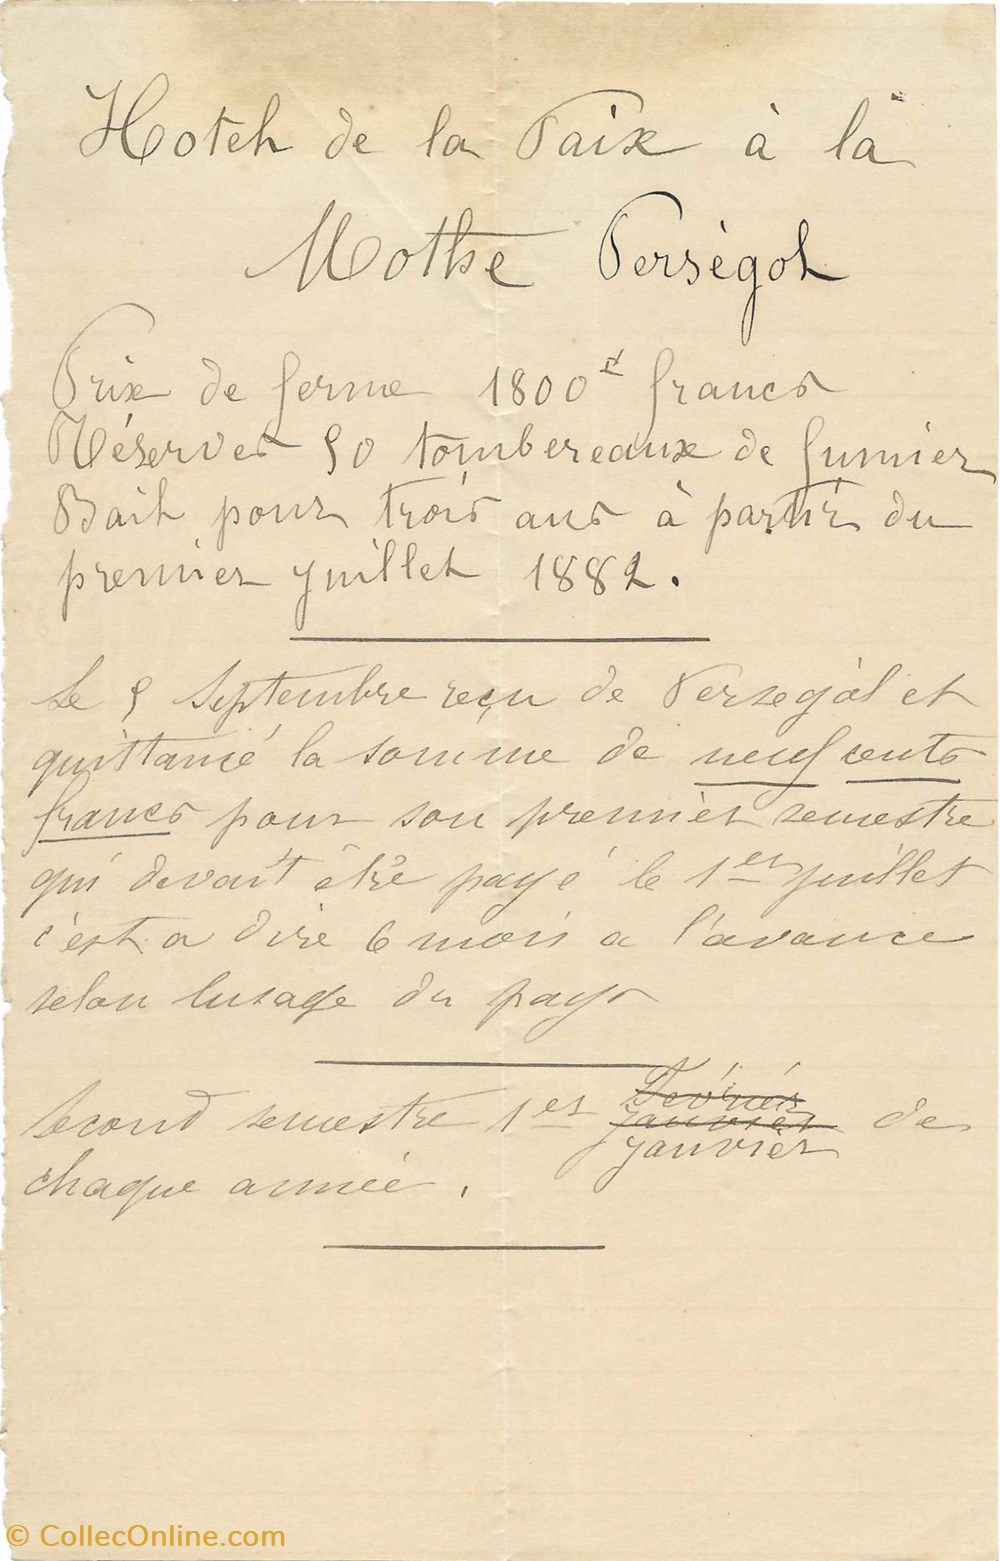 Hotel de la Paix à la
Mothe Perségol
Prix de ferme 1800f francs
Réserves 50 tombereaux de fumier
Bail pour trois ans à partir du
premier juillet 1882.
Le 5 Septembre reçu de Persegol et
quittancé la somme de neuf cents
francs pour son premier semestre
qui devait être payé le 1er juillet
c'est a dire 6 mois a l'avance
selon lusage du pays
Second semestre 1er Février janvier janvier de
chaque année.
© CollecOnline.com